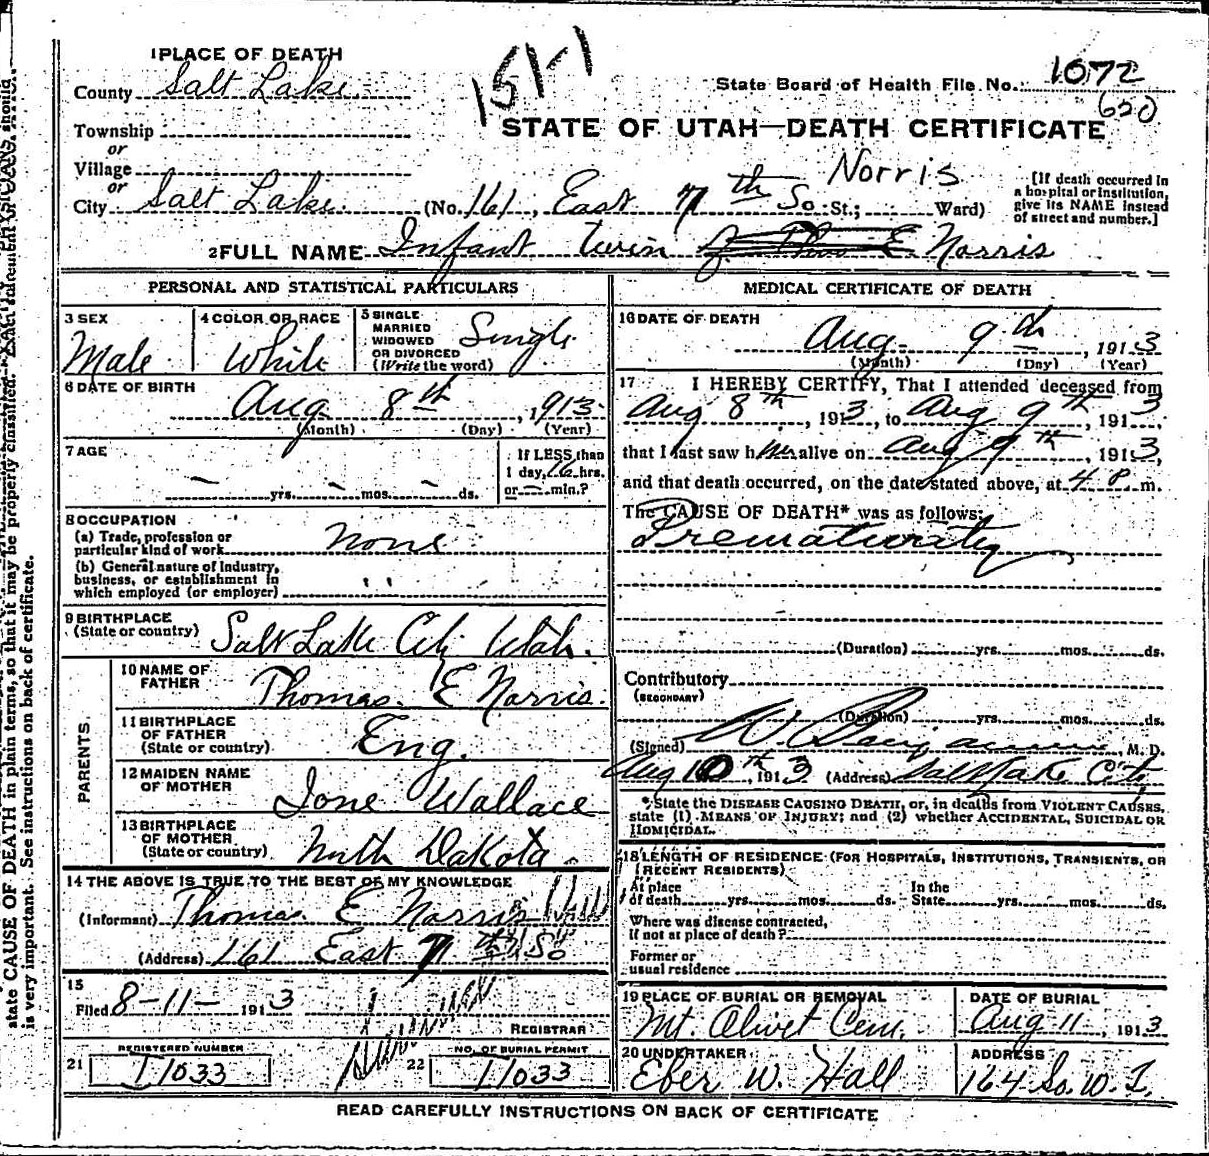 1 PLACE OF DEATH
1511
County Salt Lake
State Board of Health File No. 1072
620
Township
STATE OF UTAH—DEATH CERTIFICATE
or
Village
or
Norris
City Salt Lake (No. 161, East 7th So. St.; Ward)
[If death occurred in
a hospital or institution,
give its NAME instead
of street and number.]
2 FULL NAME Infant twin of Thos E. Norris
PERSONAL AND STATISTICAL PARTICULARS
3 SEX
Male
4 COLOR OR RACE
White
5 SINGLE
MARRIED
WIDOWED
OR DIVORCED
(Write the word)
Single
6 DATE OF BIRTH
Aug 8th, 1913
(Month) (Day) (Year)
7 AGE
— yrs. — mos. — ds.
If LESS than
1 day, 16 hrs.
or — min.?
8 OCCUPATION
(a) Trade, profession or
particular kind of work None
(b) General nature of industry,
business, or establishment in
which employed (or employer) " "
9 BIRTHPLACE
(State or country) Salt Lake City Utah.
PARENTS
10 NAME OF
FATHER Thomas E Norris.
11 BIRTHPLACE
OF FATHER
(State or country) Eng.
12 MAIDEN NAME
OF MOTHER Ione Wallace
13 BIRTHPLACE
OF MOTHER
(State or country) North Dakota.
14 THE ABOVE IS TRUE TO THE BEST OF MY KNOWLEDGE
(Informant) Thomas E Norris
(Address) 161 East 7th So
15
Filed 8-11-1913
REGISTRAR
REGISTERED NUMBER
21 I1033
NO. OF BURIAL PERMIT
22 I1033
MEDICAL CERTIFICATE OF DEATH
16 DATE OF DEATH
Aug. 9th, 1913
(Month) (Day) (Year)
17 I HEREBY CERTIFY, That I attended deceased from
Aug 8th, 1913, to Aug 9th, 1913,
that I last saw him alive on Aug 9th, 1913,
and that death occurred, on the date stated above, at 4 P. m.
The CAUSE OF DEATH* was as follows:
Prematurity
(Duration) yrs. mos. ds.
Contributory
(SECONDARY)
(Duration) yrs. mos. ds.
(Signed) W. , M. D.
Aug 10th, 1913 (Address) Salt Lake City
*State the DISEASE CAUSING DEATH, or, in deaths from VIOLENT CAUSES,
state (1) MEANS OF INJURY; and (2) whether ACCIDENTAL, SUICIDAL OR
HOMICIDAL.
18 LENGTH OF RESIDENCE (FOR HOSPITALS, INSTITUTIONS, TRANSIENTS, OR
RECENT RESIDENTS)
At place
of death yrs. mos. ds.
In the
State yrs. mos. ds.
Where was disease contracted,
If not at place of death?
Former or
usual residence
19 PLACE OF BURIAL OR REMOVAL
Mt. Olivet Cem.
DATE OF BURIAL
Aug 11, 1913
20 UNDERTAKER
Eber W. Hall
ADDRESS
164 So. W. T.
READ CAREFULLY INSTRUCTIONS ON BACK OF CERTIFICATE
state CAUSE OF DEATH in plain terms, so that it may be properly classified. Exact statement of OCCUPATION
is very important. See instructions on back of certificate.